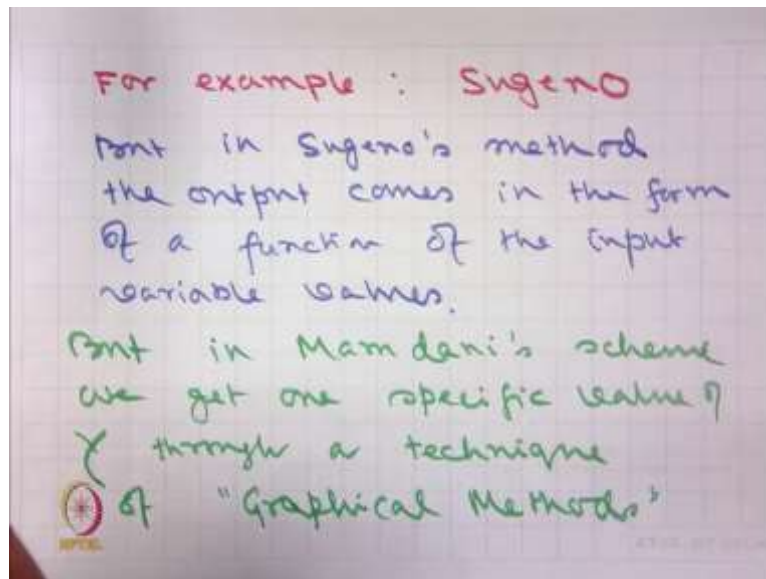 For example : Sugeno
But in Sugeno's method
the output comes in the form
of a function of the input
variable values.
But in Mamdani's scheme
we get one specific value of
Y through a technique
of "Graphical Methods"
NPTEL